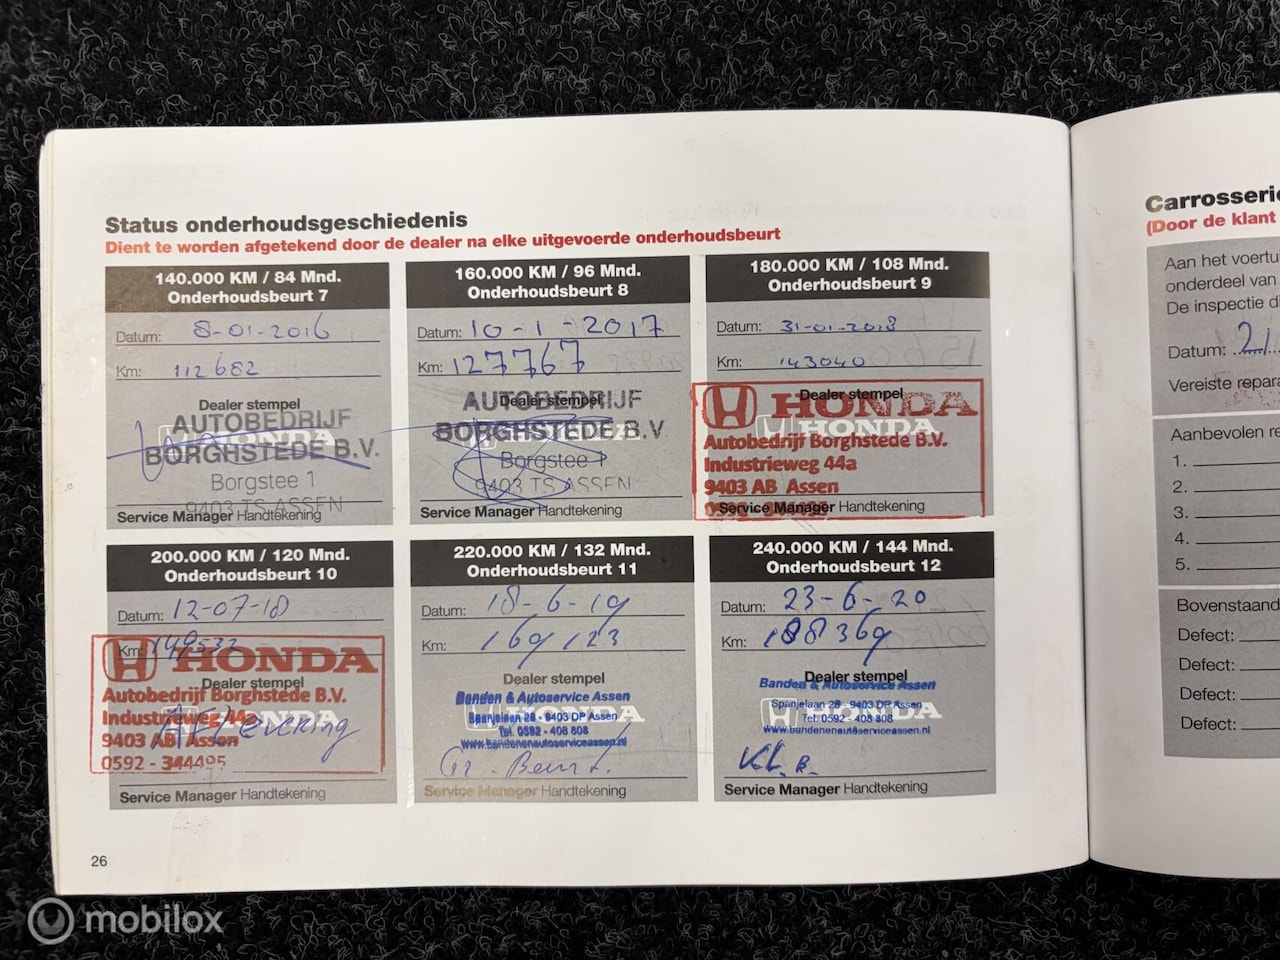 Status onderhoudsgeschiedenis
Dient te worden afgetekend door de dealer na elke uitgevoerde onderhoudsbeurt
140.000 KM / 84 Mnd.
Onderhoudsbeurt 7
Datum: 8-01-2016
Km: 112682
Dealer stempel
HONDA
AUTOBEDRIJF
BORGHSTEDE B.V.
Borgstee 1
9403 TS ASSEN
Service Manager Handtekening
160.000 KM / 96 Mnd.
Onderhoudsbeurt 8
Datum: 10-1-2017
Km: 127767
Dealer stempel
AUTOBEDRIJF
BORGHSTEDE B.V
Borgstee 1
9403 TS ASSEN
Service Manager Handtekening
180.000 KM / 108 Mnd.
Onderhoudsbeurt 9
Datum: 31-01-2018
Km: 143040
Dealer stempel
HONDA
HONDA
Autobedrijf Borghstede B.V.
Industrieweg 44a
9403 AB Assen
0592 - 344495
Service Manager Handtekening
200.000 KM / 120 Mnd.
Onderhoudsbeurt 10
Datum: 12-07-18
Km: 149532
HONDA
Dealer stempel
Autobedrijf Borghstede B.V.
Industrieweg 44a
HONDA
Aflevering
9403 AB Assen
0592 - 344495
Service Manager Handtekening
220.000 KM / 132 Mnd.
Onderhoudsbeurt 11
Datum: 18-6-19
Km: 169123
Dealer stempel
Banden & Autoservice Assen
HONDA
Spanjelaan 28 - 9403 DP Assen
Tel. 0592 - 408 808
www.bandenenautoserviceassen.nl
Gr. Beurt.
Service Manager Handtekening
240.000 KM / 144 Mnd.
Onderhoudsbeurt 12
Datum: 23-6-20
Km: 188369
Dealer stempel
Banden & Autoservice Assen
HONDA
Spanjelaan 28 - 9403 DP Assen
Tel. 0592 - 408 808
www.bandenenautoserviceassen.nl
Kl. B.
Service Manager Handtekening
26
Carrosserie
(Door de klant
Aan het voertu
onderdeel van
De inspectie di
Datum: 21
Vereiste repara
Aanbevolen re
1.
2.
3.
4.
5.
Bovenstaand
Defect:
Defect:
Defect:
Defect:
mobilox